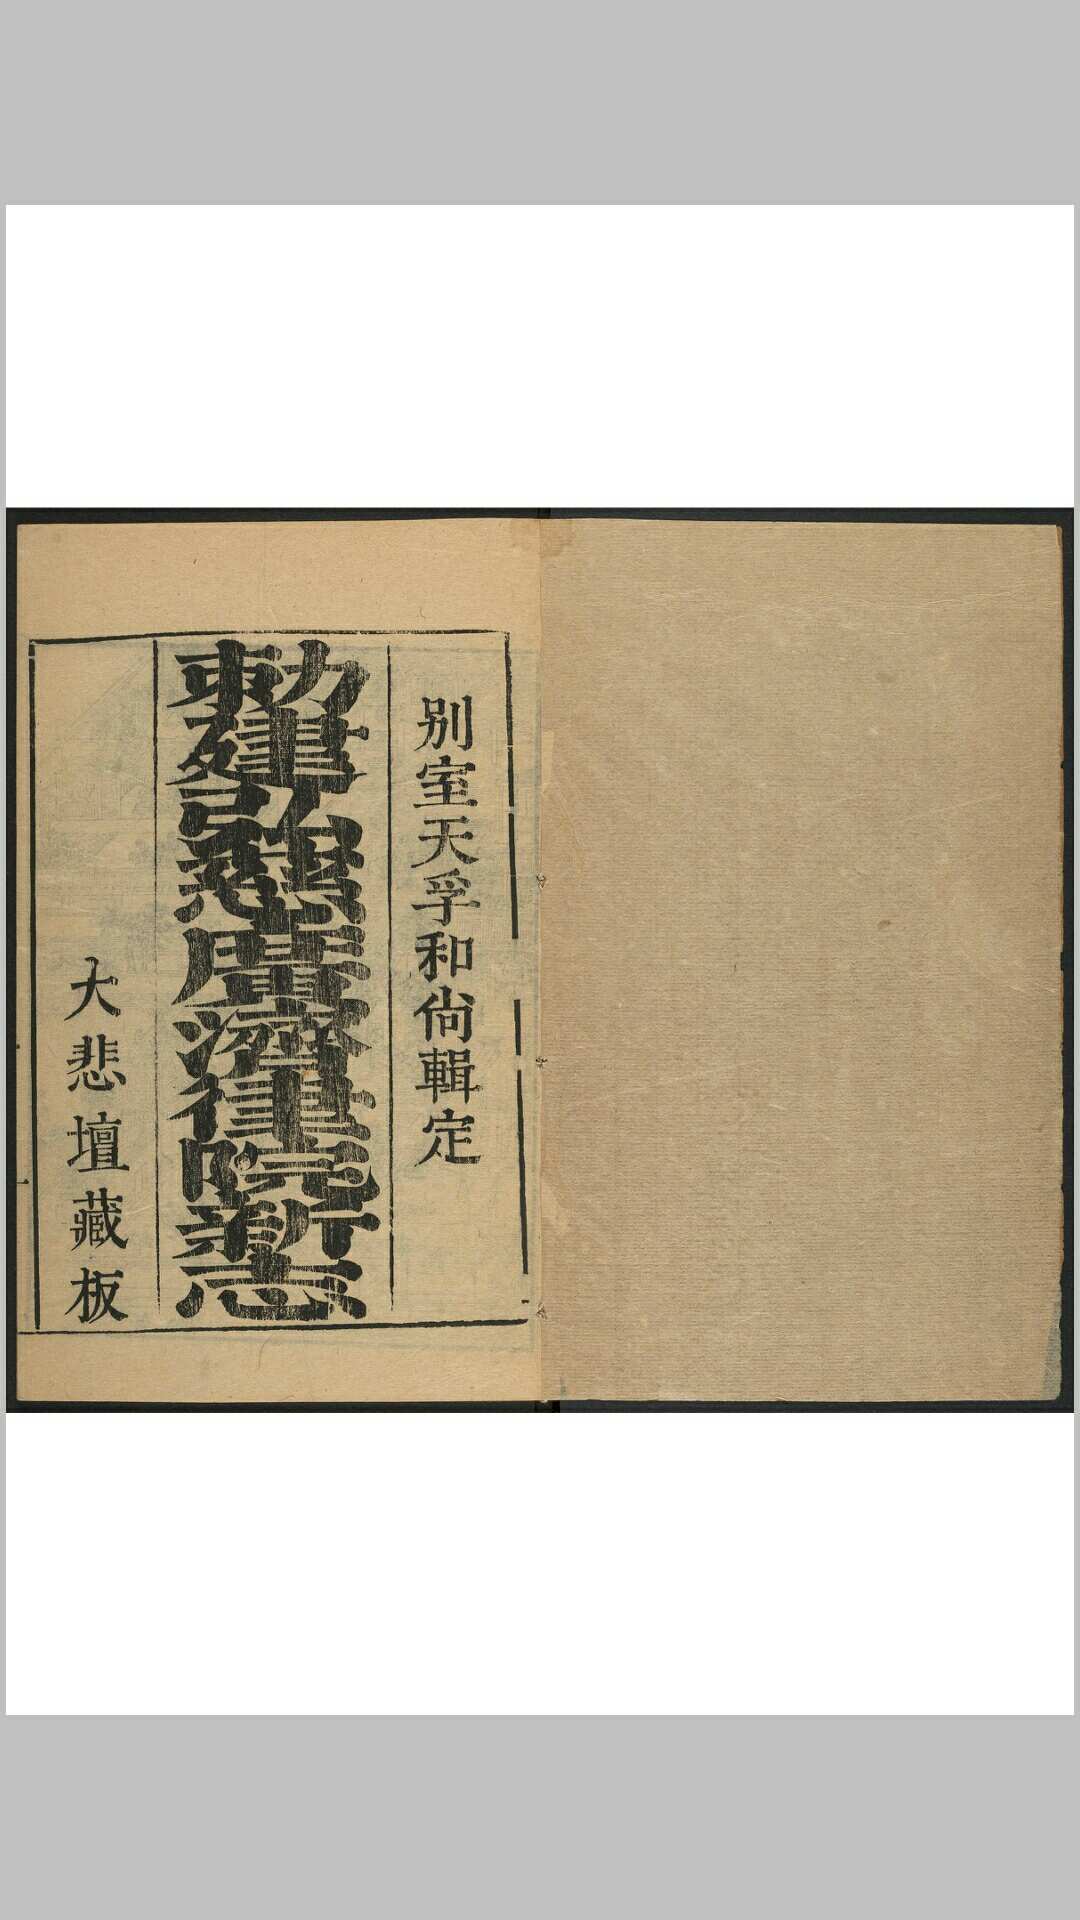 别室天孚和尚輯定
勅建弘慈廣濟律院新志
大悲壇藏板